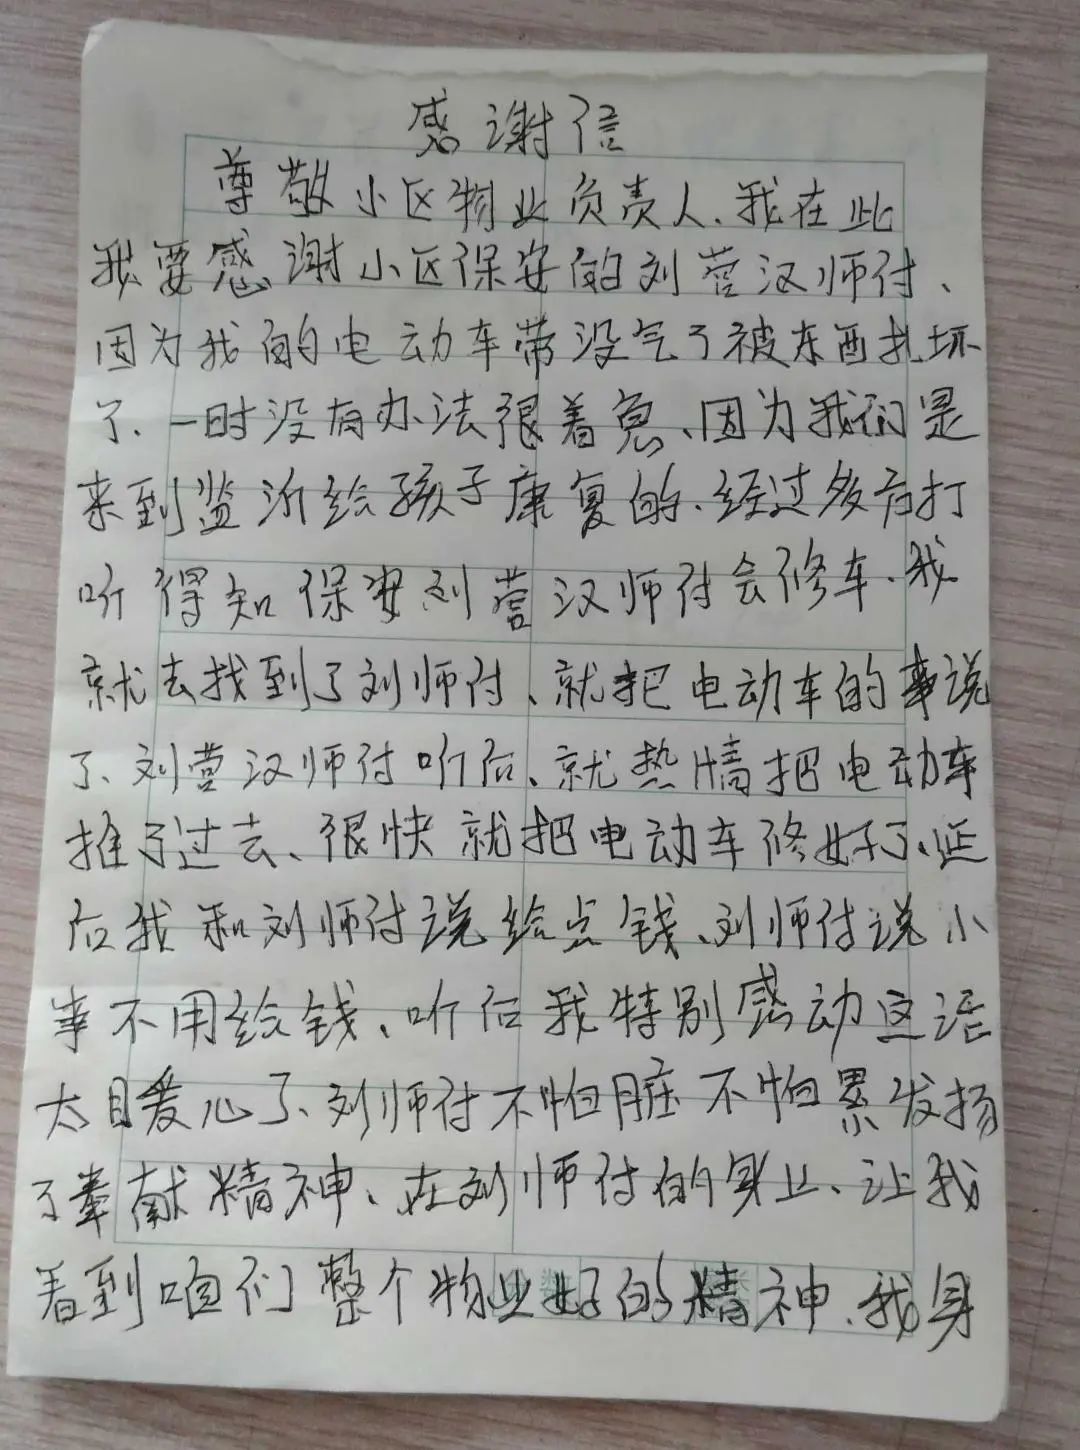 感谢信
尊敬小区物业负责人、我在此
我要感谢小区保安的刘营汉师付、
因为我的电动车带没气了被东西扎坏
了、一时没有办法很着急、因为我们是
来到监沂给孩子康复的、经过多方打
听得知保安刘营汉师付会修车、我
就去找到了刘师付、就把电动车的事说
了、刘营汉师付听后、就热情把电动车
推了过去、很快就把电动车修好了、
后我和刘师付说给点钱、刘师付说小
事不用给钱、听后我特别感动这话
太爱心了、刘师付不怕脏不怕累发扬
了奉献精神、在刘师付的身上、让我
看到咱们整个物业好的精神、我身